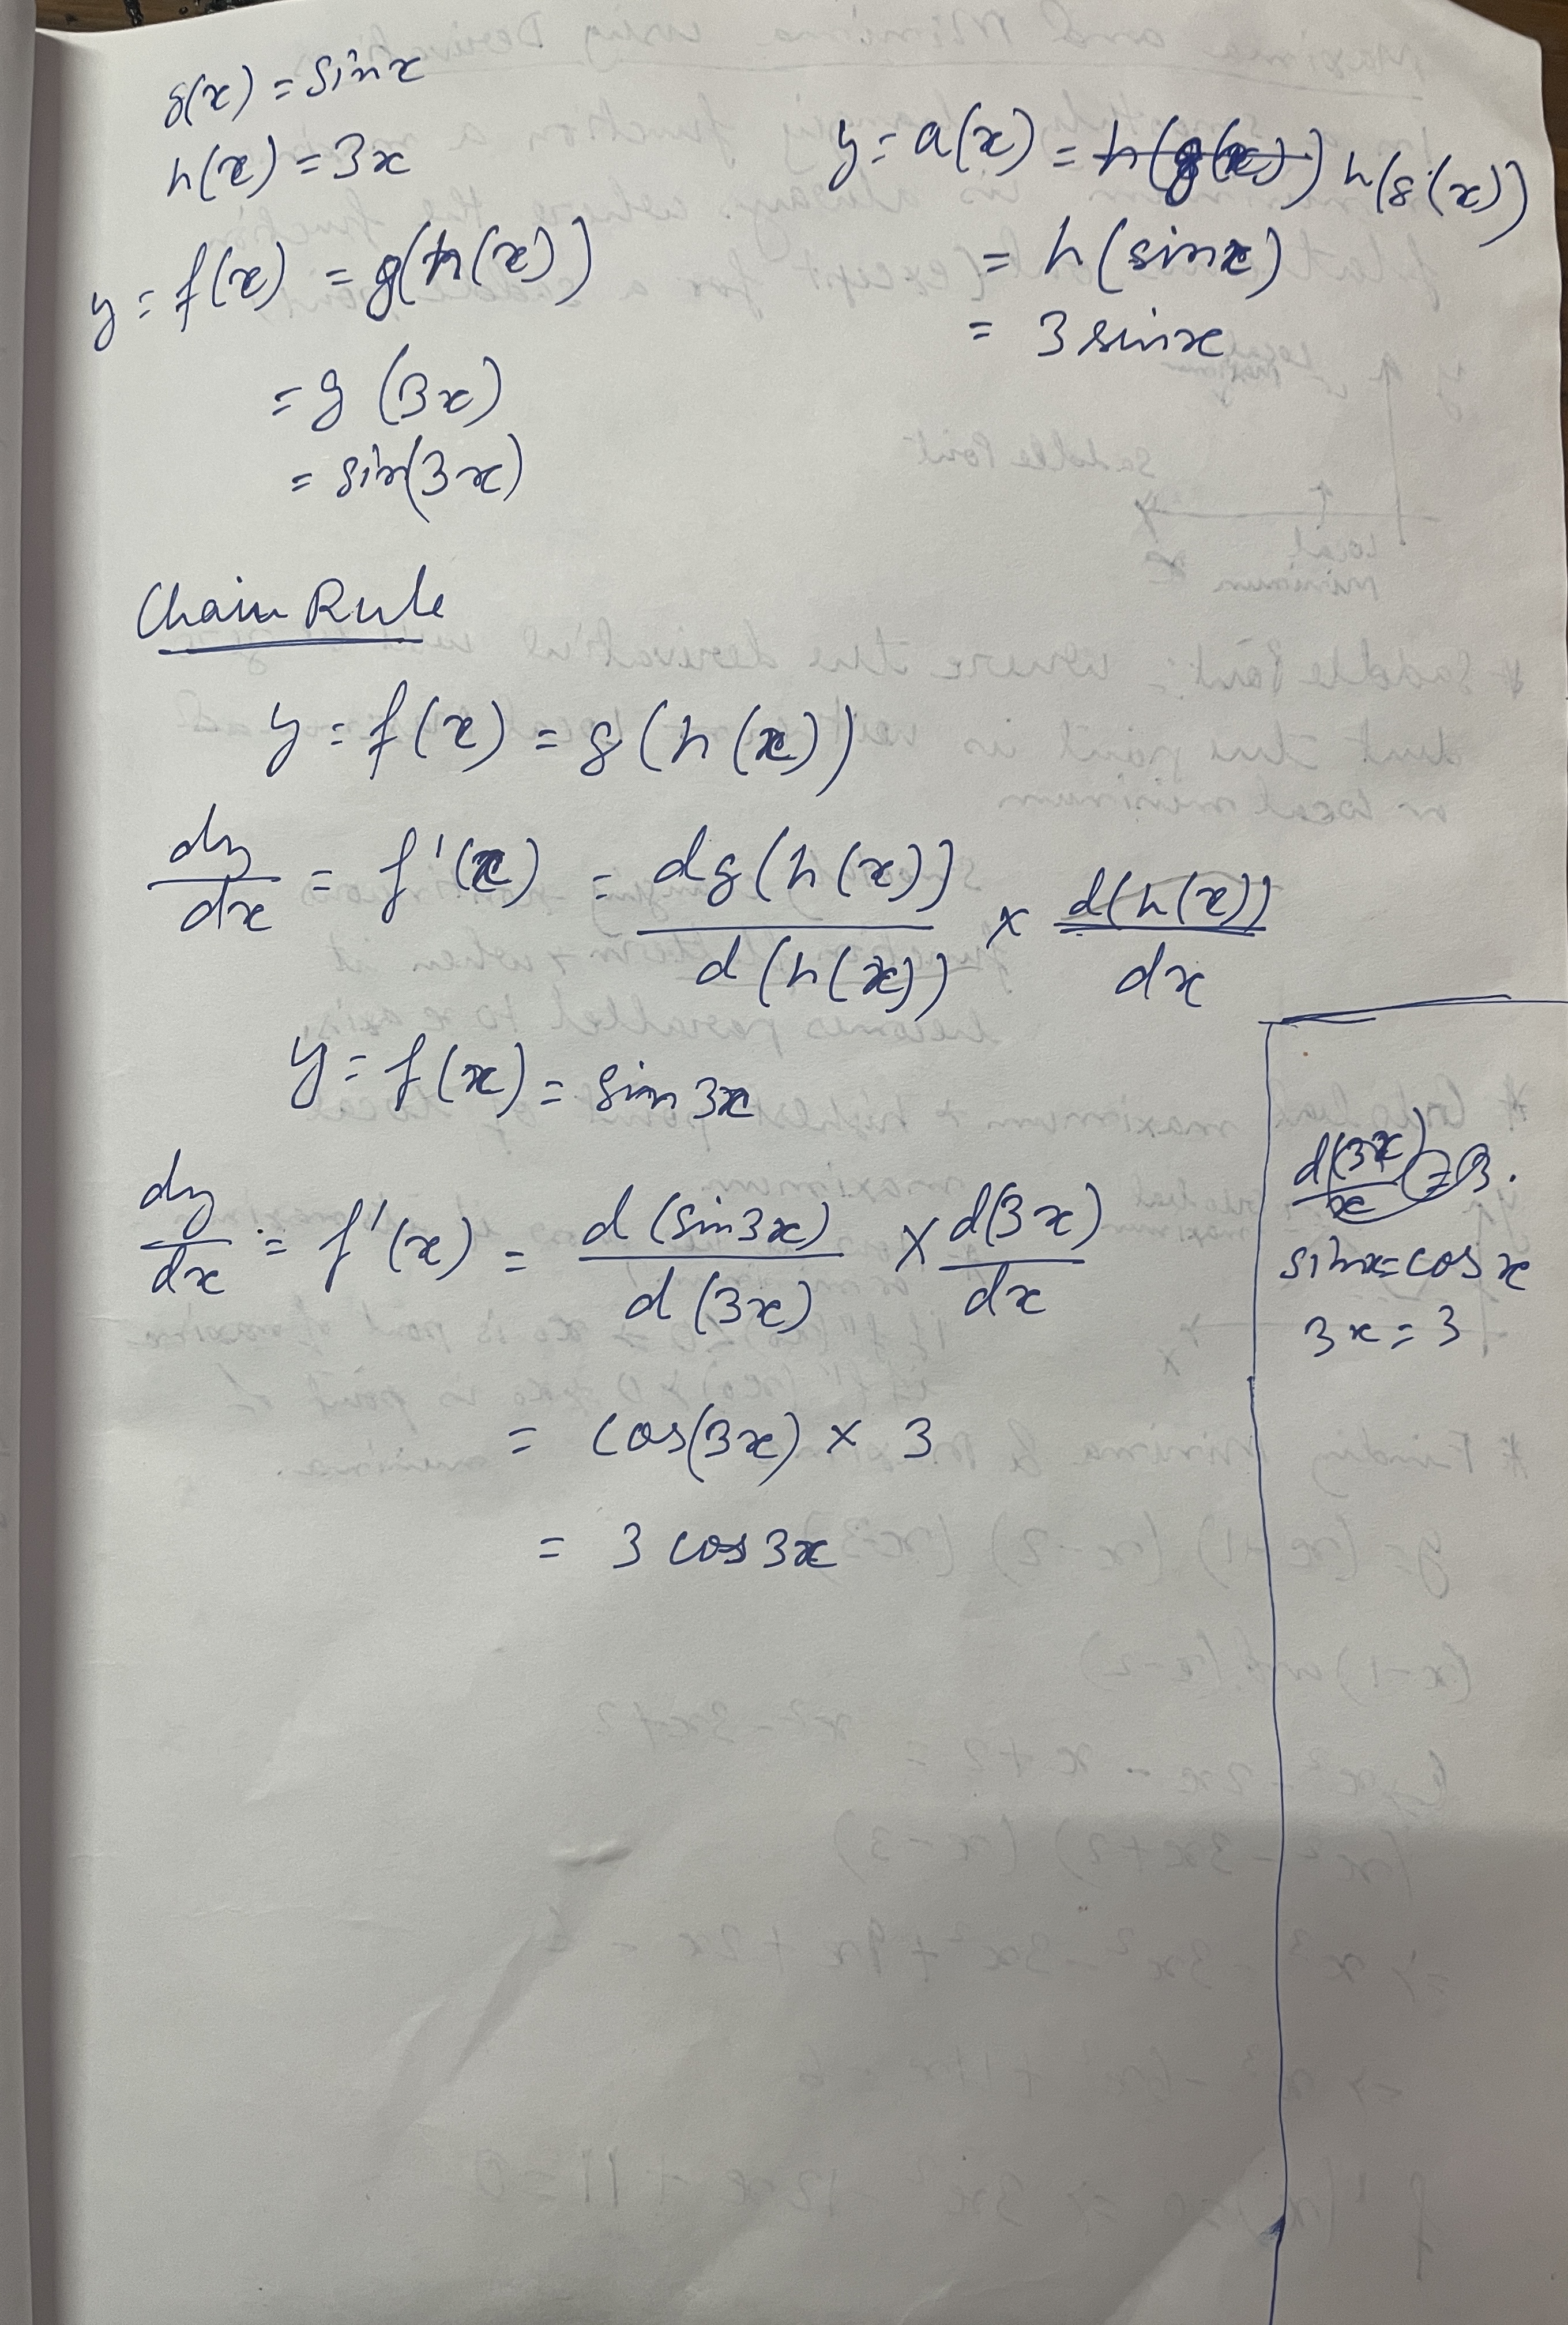 g(x) = sinx
h(x) = 3x
y = f(x) = g(h(x))
= g (3x)
= sin(3x)
y = a(x) = h(g(x)) h(g(x))
= h(sinx)
= 3 sinx
Chain Rule
y = f(x) = g(h(x))
dy/dx = f'(x) = dg(h(x))/d(h(x)) × d(h(x))/dx
y = f(x) = sin 3x
dy/dx = f'(x) = d(sin3x)/d(3x) × d(3x)/dx
= cos(3x) × 3
= 3 cos3x
d(3x)/x = 3.
sinx = cos x
3x = 3